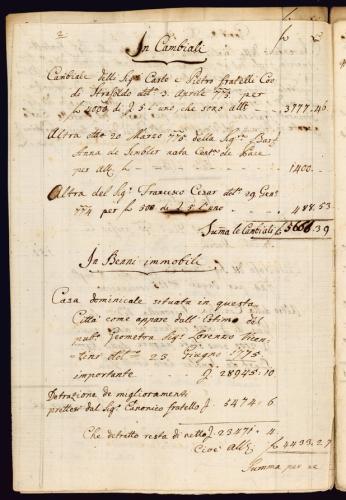 2
In Cambiali
Cambiale delli Sig.ri Carlo e Pietro fratelli Co:
di Strasoldo dtt.a 3. Aprile 775. per
f 4000 di £ 5 l'uno, che sono all.
3777.46
Altra dtt.a 20 Marzo 775 della Sig.ra
Anna de nata Cont.a de
per all. f
1400.
Altra del Sig.r Francesco dtt.a 29 Gen.
774 per f 500 di £ 5 l'uno
488.53
Suma le Cambiali f 5666.39
In Benni immobili
Casa dominicale situata in questa
Città come appare dall'Estimo del
pub.o Geometra Sig.r Lorenzo
dtt.o 23. Giugno 1775
importante £ 28945:10
Detrazione de miglioramenti
dal Sig.r Canonico fratello £ 5474:6
Che detratto resta di netto £ 23471:4
Cioè All. f 4433.27
Summa per se